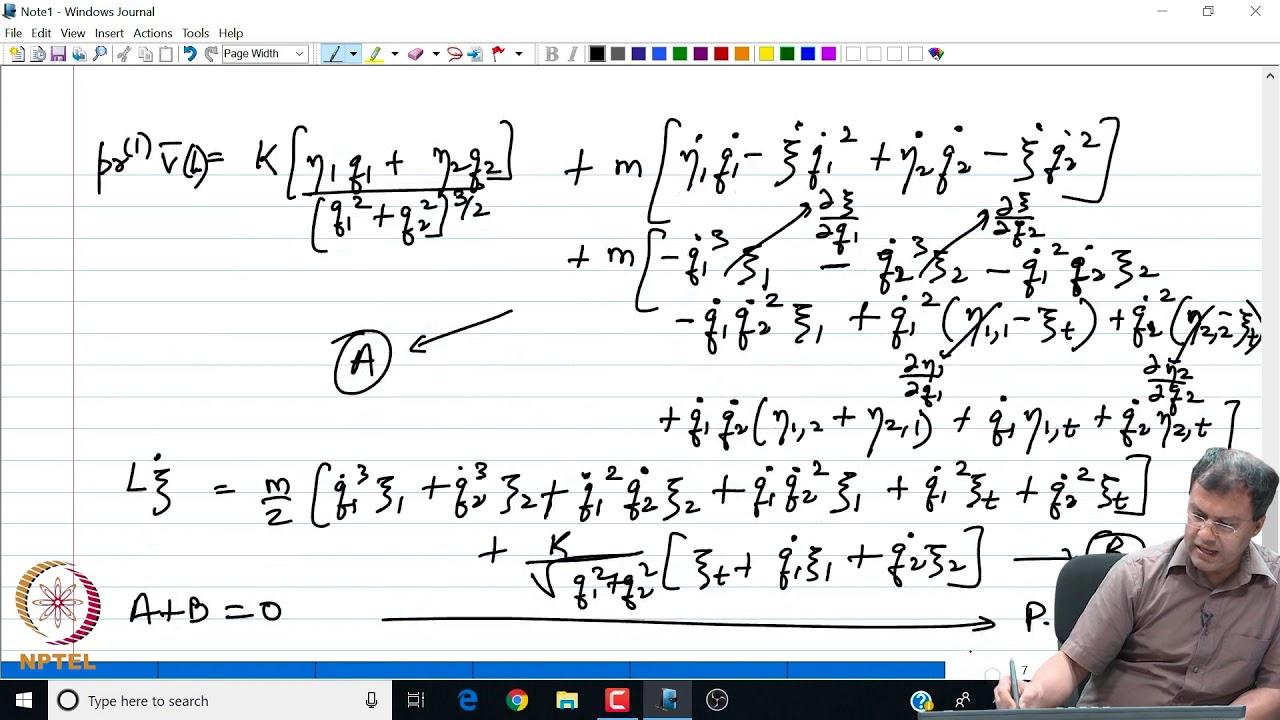 Note1 - Windows Journal
File Edit View Insert Actions Tools Help
Page Width
B I
pr⁽¹⁾ v̄(L) = K[η₁q₁ + η₂q₂] / [q₁² + q₂²]^3/2 + m[η̇₁q̇₁ - ξ̇q̇₁² + η̇₂q̇₂ - ξ̇q̇₂²]
∂ξ/∂q₁ ∂ξ/∂q₂
+ m[-q̇₁³ξ₁ - q̇₂³ξ₂ - q̇₁²q̇₂ξ₂
- q̇₁q̇₂²ξ₁ + q̇₁²(η₁,₁ - ξt) + q̇₂²(η₂,₂ - ξt)
A
∂η₁/∂q₁ ∂η₂/∂q₂
+ q̇₁q̇₂(η₁,₂ + η₂,₁) + q̇₁η₁,t + q̇₂η₂,t]
Lξ̇ = m/2 [q̇₁³ξ₁ + q̇₂³ξ₂ + q̇₁²q̇₂ξ₂ + q̇₁q̇₂²ξ₁ + q̇₁²ξt + q̇₂²ξt]
+ K/√q₁²+q₂² [ξt + q̇₁ξ₁ + q̇₂ξ₂] → B
A+B = 0 → P.
NPTEL
7
Type here to search